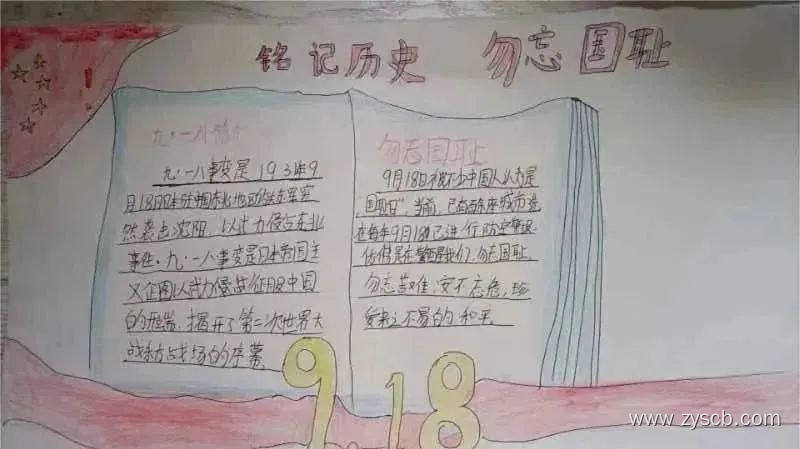 铭记历史 勿忘国耻
九·一八简介
九·一八事变是1931年9
月18日日本驻中国东北地
然袭击沈阳,以武力侵占东北
事件。九·一八事变是日本帝国主
义企图以武力侵占征服中国
的开端,揭开了第二次世界大
战东方战场的序幕
勿忘国耻
9月18日被不少中国人认为是
"国耻日"当前,已有百余座城市选
在每年9月18日进行防空警报
仿佛是在警醒我们,勿忘国耻,
勿忘苦难,安不忘危,珍
爱来之不易的和平。
9.18
www.zyscb.com